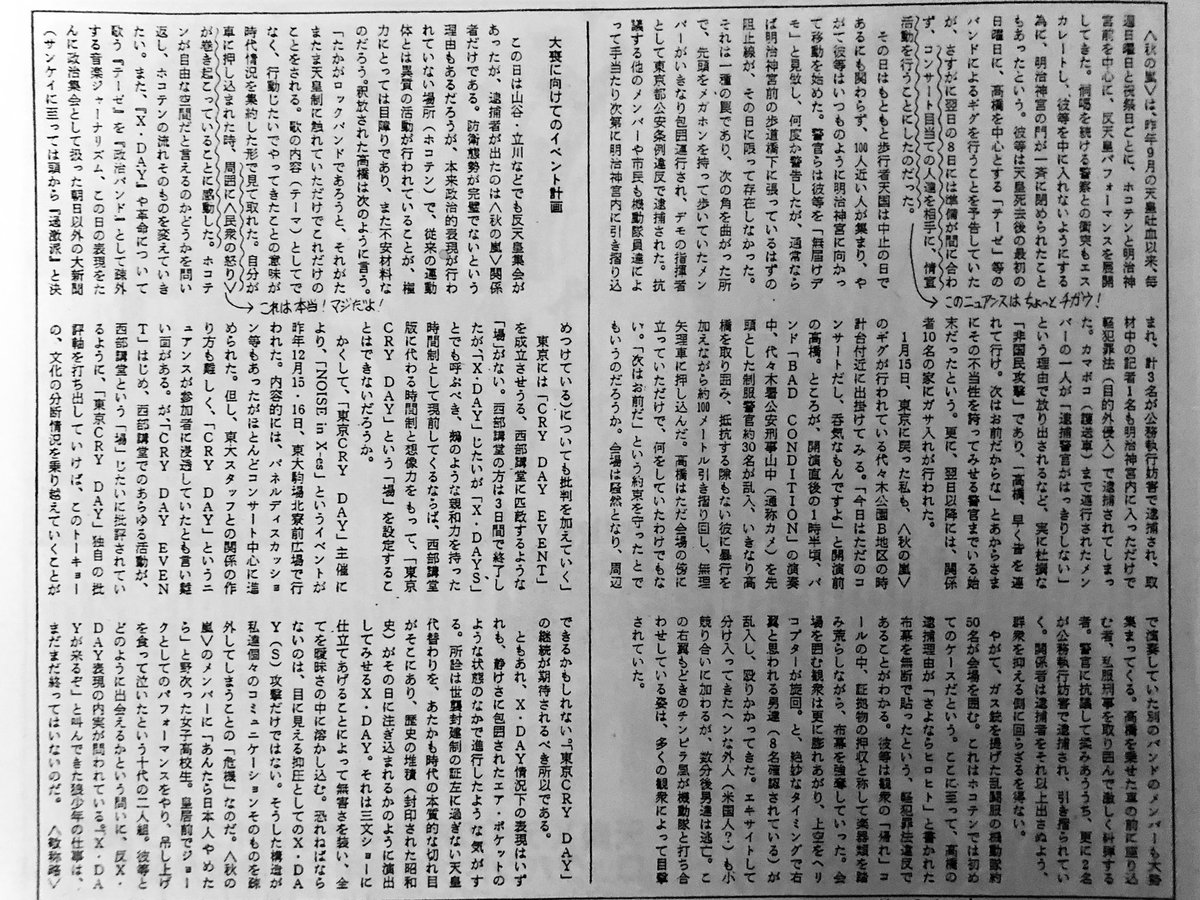 〈秋の嵐〉は、昨年9月の天皇吐血以来、毎
週日曜日と祝祭日ごとに、ホコテンと明治神
宮前を中心に、反天皇パフォーマンスを展開
してきた。恫喝を続ける警察との衝突もエス
カレートし、彼等を中に入れないようにする
為に、明治神宮の門が一斉に閉められたこと
もあったという。彼等は天皇死去後の最初の
日曜日に、高橋を中心とする「テーゼ」等の
バンドによるギグを行うことを予告していた
が、さすがに翌日の8日には準備が間に合わ
ず、コンサート目当ての人達を相手に、情宣
活動を行うことにしたのだった。
このニュアンスはちょっとチガウ!
その日はもともと歩行者天国は中止の日で
あるにも関わらず、100人近い人が集まり、や
がて彼等はいつものように明治神宮に向かっ
て移動を始めた。警官らは彼等を「無届けデ
モ」と見做し、何度か警告したが、通常なら
ば明治神宮前の歩道橋下に張っているはずの
阻止線が、その日に限って存在しなかった。
それは一種の罠であり、次の角を曲がった所
で、先頭をメガホンを持って歩いていたメン
バーがいきなり包囲連行され、デモの指揮者
として東京都公安条例違反で逮捕された。抗
議する他のメンバーや市民も機動隊員達によ
って手当たり次第に明治神宮内に引き摺り込
まれ、計3名が公務執行妨害で逮捕され、取
材中の記者1名も明治神宮内に入っただけで
軽犯罪法(目的外侵入)で逮捕されてしまっ
た。カマボコ(護送車)まで連行されたメン
バーの一人が「逮捕警官がはっきりしない」
という理由で放り出されるなど、実に杜撰な
「非国民攻撃」であり、「高橋、早く皆を連
れて行け。次はお前だからな」とあからさま
にその不当性を誇ってみせる警官までいる始
末だったという。更に、翌日以降には、関係
者10名の家にガサ入れが行われた。
1月15日、東京に戻った私も、〈秋の嵐〉
のギグが行われている代々木公園B地区の時
計台付近に出掛けてみる。「今日はただのコ
ンサートだし、呑気なもんですよ」と開演前
の高橋。ところが、開演直後の1時半頃、バ
ンド「BAD CONDITION」の演奏
中、代々木署公安刑事山中(通称カメ)を先
頭とした制服警官約30名が乱入、いきなり高
橋を取り囲み、抵抗する隙もない彼に暴行を
加えながら約100メートル引き摺り回し、無理
矢理車に押し込んだ。高橋はただ会場の傍に
立っていただけで、何をしていたわけでもな
い。「次はお前だ」という約束を守ったとで
もいうのだろうか。会場は騒然となり、周辺
で演奏していた別のバンドのメンバーも大勢
集まってくる。高橋を乗せた車の前に座り込
む者、私服刑事を取り囲んで激しく糾弾する
者。警官に抗議して揉みあううち、更に2名
が公務執行妨害で逮捕され、引き摺られてい
く。関係者は逮捕者をそれ以上出さぬよう、
群衆を抑える側に回らざるを得ない。
やがて、ガス銃を提げた乱闘服の機動隊約
50名が会場を囲む。これはホコテンでは初め
てのケースだという。ここに至って、高橋の
逮捕理由が「さよならヒロヒト」と書かれた
布幕を無断で貼ったという、軽犯罪法違反で
あることがわかる。彼等は観衆の「帰れ」コ
ールの中、証拠物の押収と称して楽器類を踏
み荒らしながら、布幕を強奪していった。会
場を囲む観衆は更に膨れあがり、上空をヘリ
コプターが旋回。と、絶妙なタイミングで右
翼と思われる男達(8名確認されている)が
乱入し、殴りかかってきた。エキサイトして
分け入ってきたヘンな外人(米国人?)も小
競り合いに加わるが、数分後男達は逃亡。こ
の右翼もどきのチンピラ屋が機動隊と打ち合
わせしている姿は、多くの観衆によって目撃
されていた。
大喪に向けてのイベント計画
この日は山谷・立川などでも反天皇集会が
あったが、逮捕者が出たのは〈秋の嵐〉関係
者だけである。防衛態勢が完璧でないという
理由もあるだろうが、本来政治的表現が行わ
れていない場所(ホコテン)で、従来の運動
体とは異質の活動が行われていることが、権
力にとっては目障りであり、また不安材料な
のだろう。釈放された高橋は次のように言う。
「たかがロックバンドであろうと、それがた
またま天皇制に触れていただけでこれだけの
ことをされる。歌の内容(テーマ)としてで
なく、行動じたいでやってきたことの意味が
時代情況を集約した形で見て取れた。自分が
車に押し込まれた時、周囲に〈民衆の怒り〉
が巻き起こっていることに感動した。ホコテ
これは本当!マジだよ!
ンが自由な空間だと言えるのかどうかを問い
返し、ホコテンの流れそのものを変えていき
たい。また、『X・DAY』や革命について
歌う『テーゼ』を『政治バンド』として疎外
する音楽ジャーナリズム、この日の表現をた
んに政治集会として扱った朝日以外の大新聞
(サンケイに至っては頭から『過激派』と決
めつけている)についても批判を加えていく」
東京には「CRY DAY EVENT」
を成立させうる、西部講堂に匹敵するような
「場」がない。西部講堂の方は3日間で終了し
たが、「X・DAY」じたいが「X・DAYS」
とでも呼ぶべき、鵺のような親和力を持った
時間制として現前してくるならば、西部講堂
版に代わる時間制と想像力をもって、「東京
CRY DAY」という「場」を設定するこ
とはできないだろうか。
かくして、「東京CRY DAY」主催に
より、「NOISE in X-es」というイベントが
昨年12月15・16日、東大駒場北寮前広場で行
われた。内容的には、パネルディスカッショ
ン等もあったがほとんどコンサート中心に進
められた。但し、東大スタッフとの関係の作
り方も難しく、「CRY DAY」というニ
ュアンスが参加者に浸透していたとも言い難
い面がある。が、「CRY DAY EVEN
T」はじめ、西部講堂でのあらゆる活動が、
西部講堂という「場」じたいに批評されてい
るように、「東京CRY DAY」独自の批
評軸を打ち出していけば、このトーキョー
の、文化の分断情況を乗り越えていくことが
できるかもしれない。「東京CRY DAY」
の継続が期待されるべき所以である。
ともあれ、X・DAY情況下の表現はいず
れも、静けさに包囲されたエア・ポケットの
ような状態のなかで進行したような気がす
る。所詮は世襲封建制の証左に過ぎない天皇
代替わりを、あたかも時代の本質的な切れ目
がそこにあり、歴史の堆積(封印された昭和
史)がその日に注ぎ込まれるかのように演出
してみせるX・DAY。それは三文ショーに
仕立てあげることによって無害さを装い、全
てを曖昧さの中に溶かし込む。恐れねばなら
ないのは、目に見える抑圧としてのX・DA
Y(S)攻撃だけではない。そうした構造が
私達個々のコミュニケーションそのものを疎
外してしまうことの「危機」なのだ。〈秋の
嵐〉のメンバーに「あんたら日本人やめた
ら」と野次った女子高校生。皇居前でジョー
クとしてのパフォーマンスをやり、吊し上げ
を食って泣いたという十代の二人組。彼等と
どのように出会えるかという問いに、反X・
DAY表現の内実が問われている。「X・DA
Yが来るぞ」と叫んできた狼少年の仕事は、
まだまだ終ってはいないのだ。 〈敬称略〉